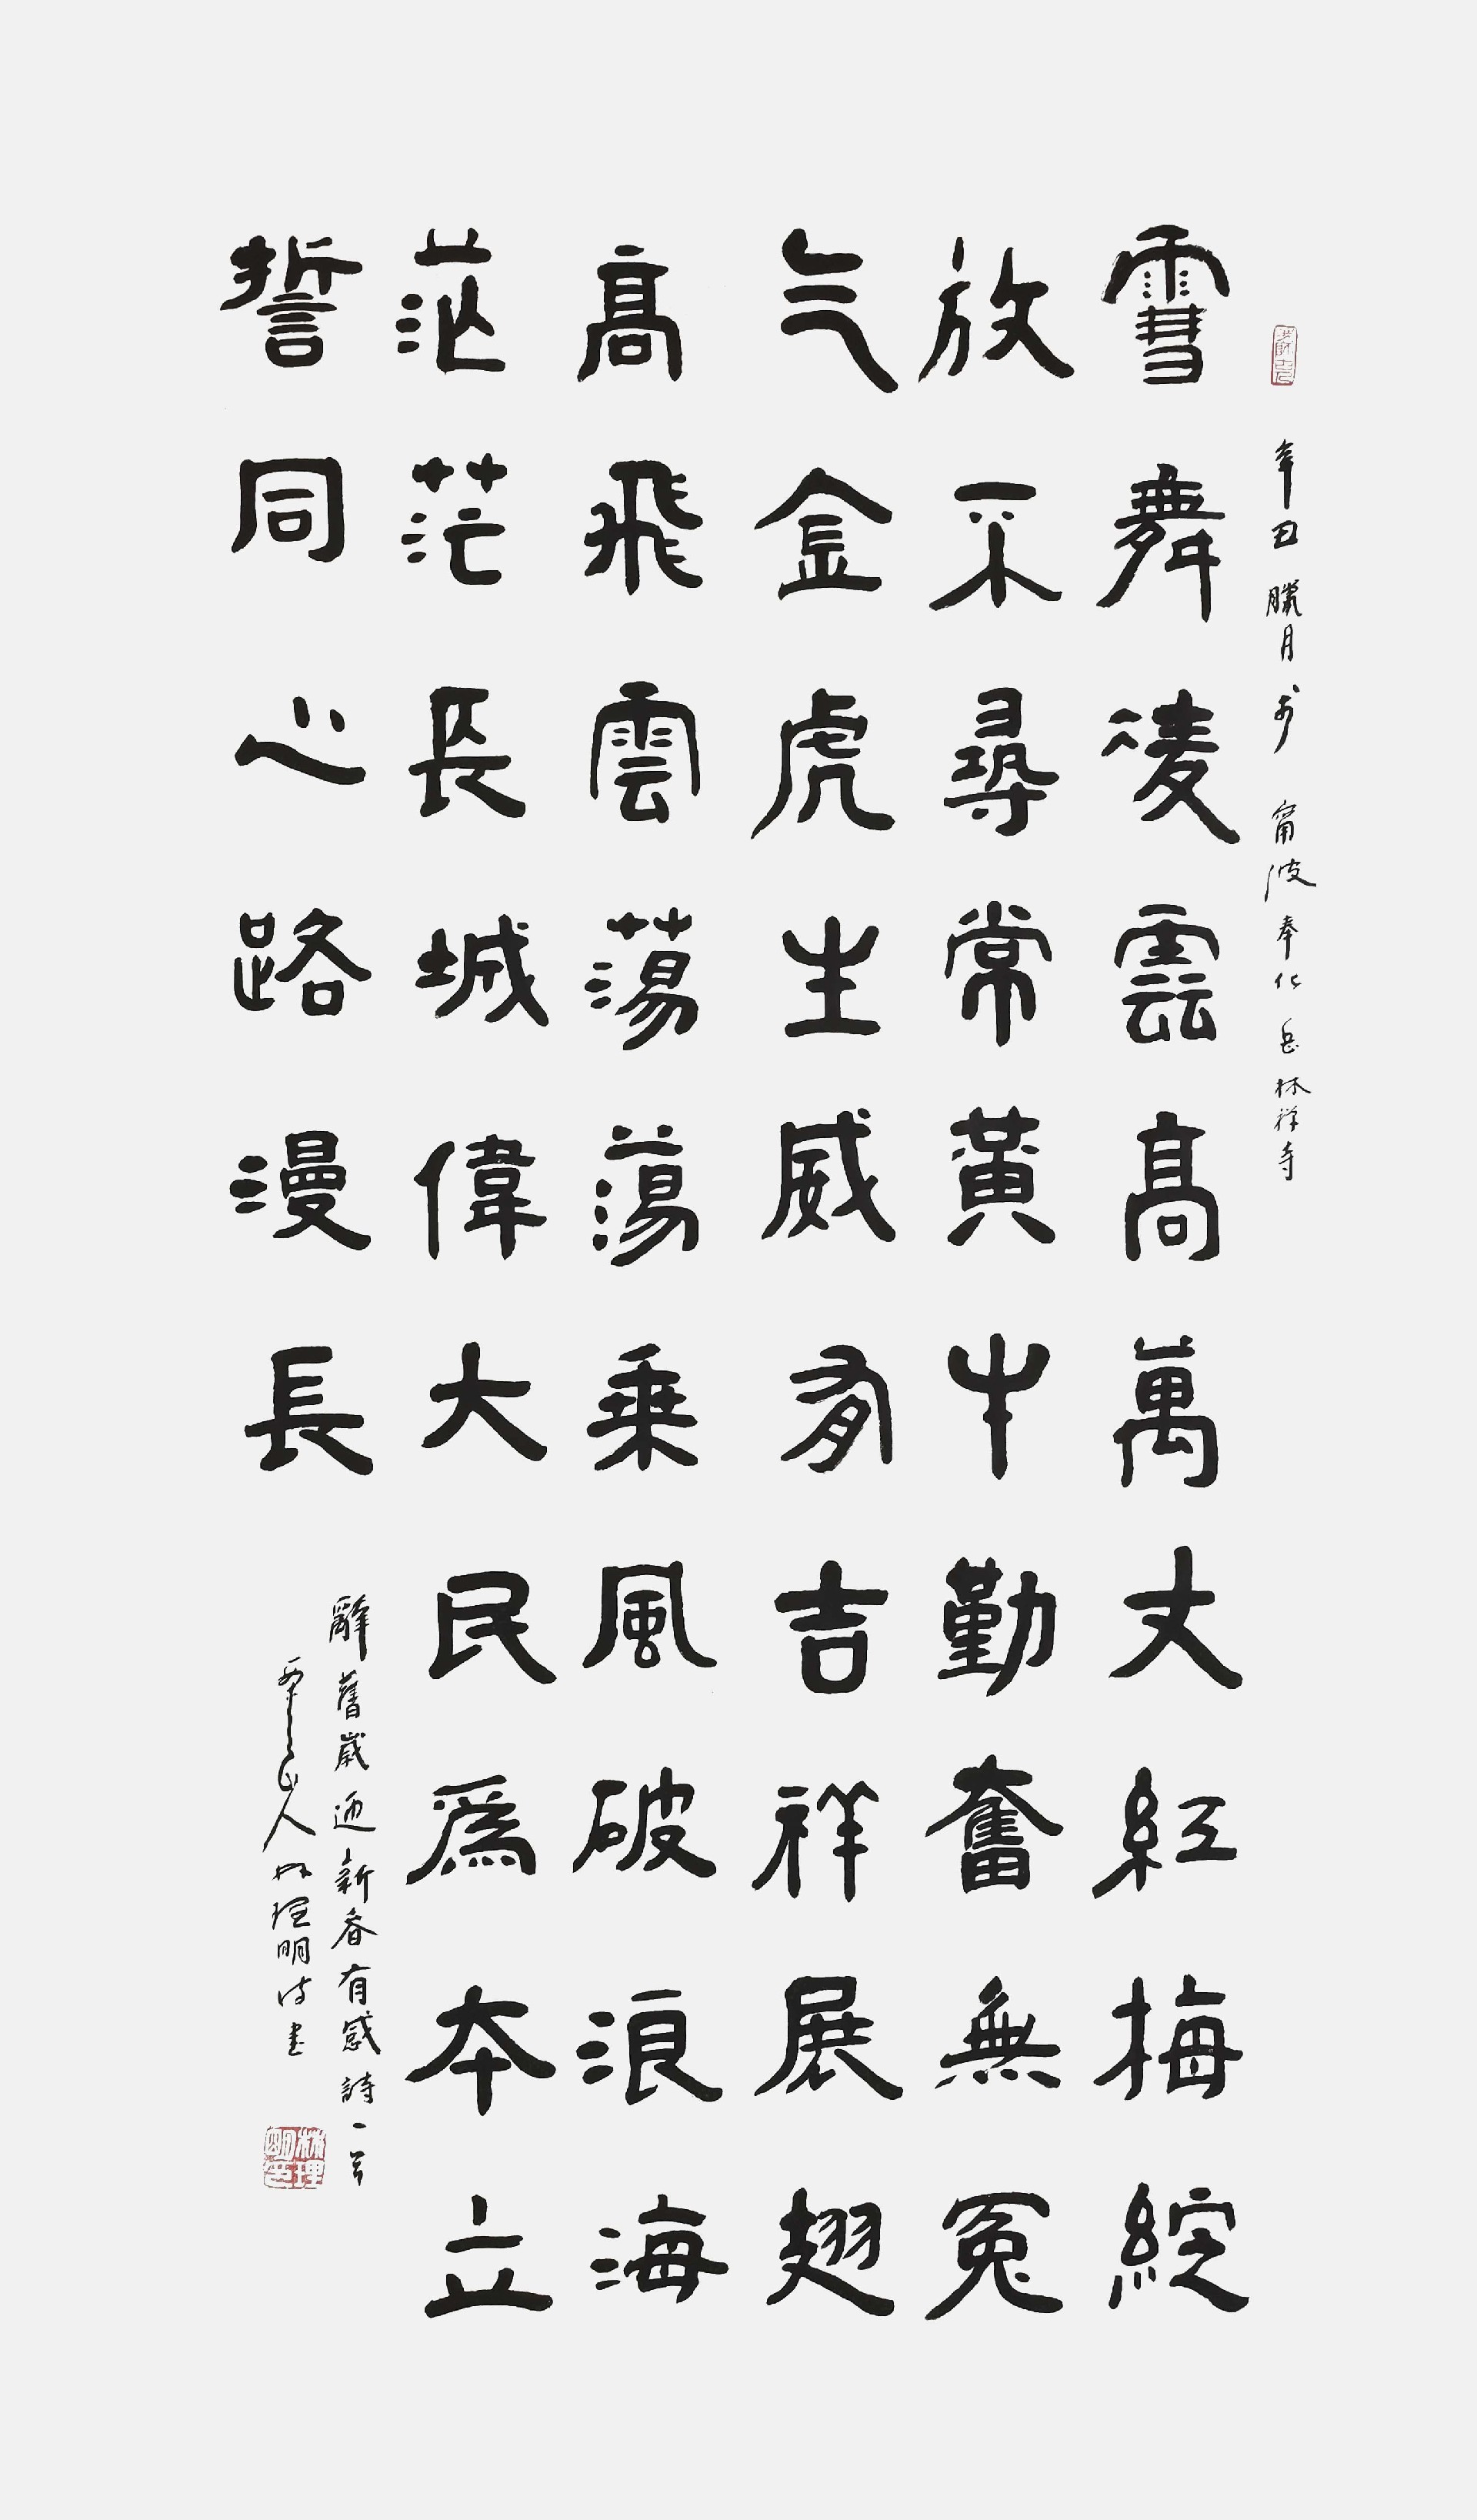 辛丑臘月於甯波奉化岳林禅寺
雪舞凌雲高萬丈紅梅綻
放不尋常黃牛勤奮無冤
气金虎生威有吉祥展翅
高飛雲蕩蕩乘風破浪海
茫茫長城偉大民爲本立
誓同心路漫長
辭舊歲迎新春有感詩一首
山人林理明诗書
林理明印